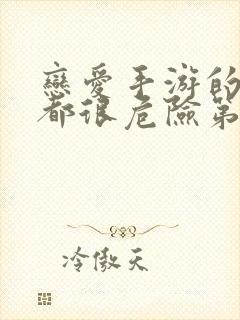 戀愛手游的
都很危險第
冷傲天